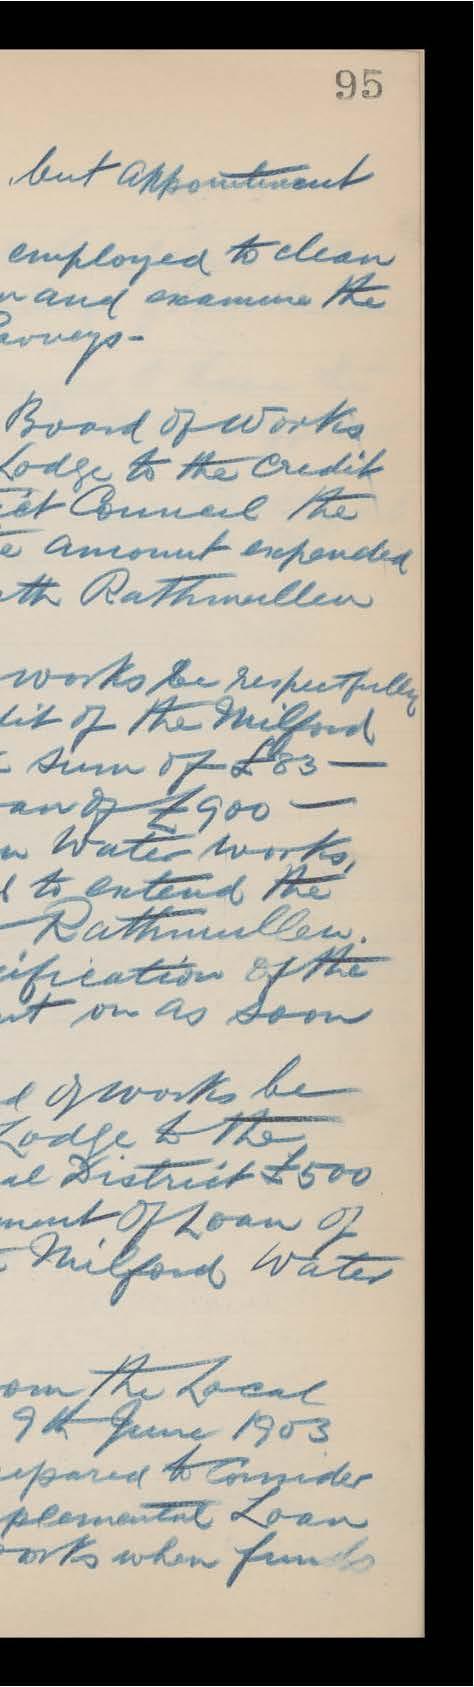 95
but appointment
employed to clean
and examine the
Board of Works
Lodge to the credit
ict Council the
e amount expended
th Rathmullen
works be respectfully
dit of the Milford
sum of £83 —
an of £900 —
n Water works,
d to extend the
Rathmullen.
cification of the
nt on as soon
d of works be
Lodge to the
al District £500
ment of Loan of
Milford Water
om the Local
9th June 1903
epared to consider
plemental Loan
orks when funds